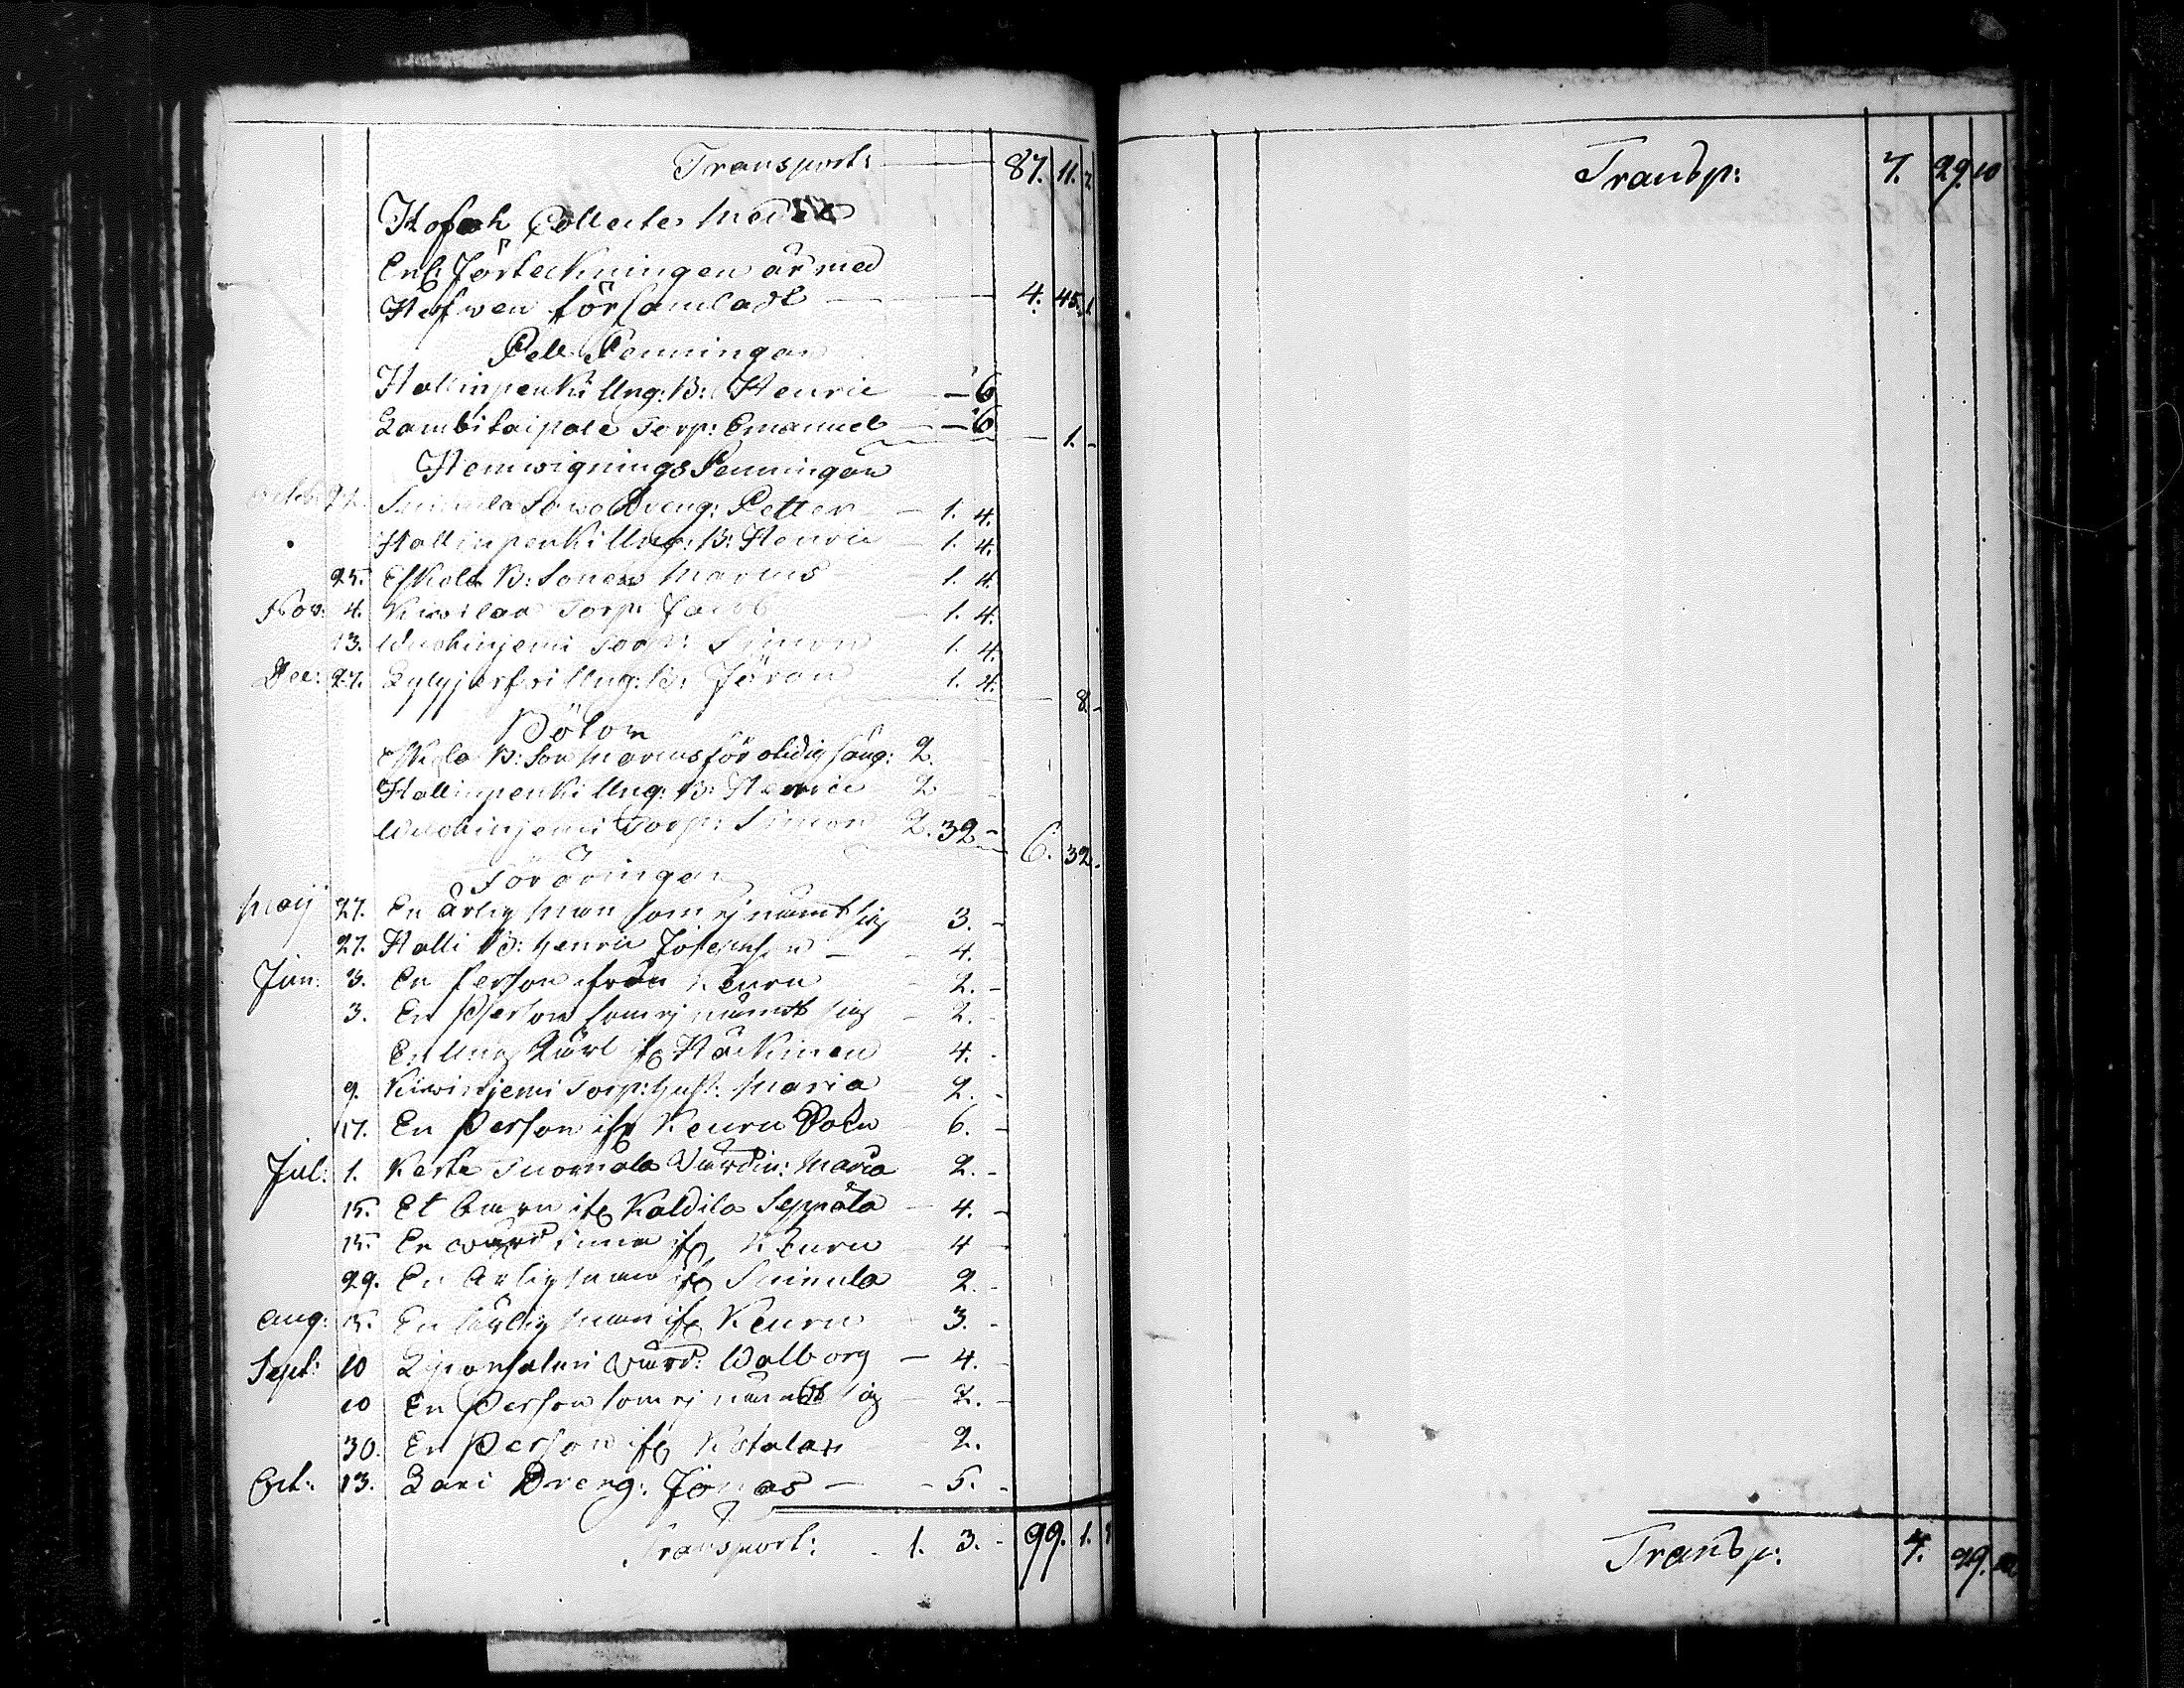 Transport: 87. 11. 7.
Håfwe Collecter Med
Enl: Förteckningen är med
Håfwen församladt 4. 45. 1
Pell Penningar
Hallinpenki Ung: B: Henric 6
Lambitaipale Torp: Emanuel 6 1. -
Hemwignings Penningar
Suinula Dreng: Petter 1. 4.
Hallinpenki Ung: B: Henric 1. 4.
25. Eskola B: Sonen Marcus 1. 4.
Nov: 4. Kiwilax Torp: Jacob 1. 4.
13. Wuohinjemi Torp: Simon 1. 4.
Dec: 27. Lylyjerfwi Ung: B: Jöran 1. 4. 8. -
Böter
Eskola B: Son Marcus för otidig säng: 2.
Hallinpenki Ung: B: Henric 2
Wuohinjemi Torp: Simon 2. 32 - 6. 32.
Föräringar
Maij 27. En ärlig Man som ej nämt sig 3. -
27. Halli B: Henric 4.
Jun: 3. En Person från Keuru 2. -
3. En Person som ej nämdt sig 2. -
En Ung Karl ifr Häckinen 4. -
9. Kiwinjemi Torp: Hust: Maria 2. -
17. En Person ifr Keuru 6. -
Jul: 1. Keske Suomala Värdin: Maria 2. -
15. Et Barn ifr Kaldila Seppälä 4. -
15. En wärdinna ifr Keuru 4 -
29. En Ärlig man ifr Suinula 2. -
Aug: 5. En Ärlig Man ifr Keuru 3. -
Sept: 10 wärd: Walborg 4. -
10 En Person som ej nämdt sig 2. -
30. En Person ifr 2.
Oct: 13. Lari Dreng: Jonas 5. -
Transport: 1. 3. - 99. 1.
Transp: 7. 29. 10
Transp: 7. 29. 10